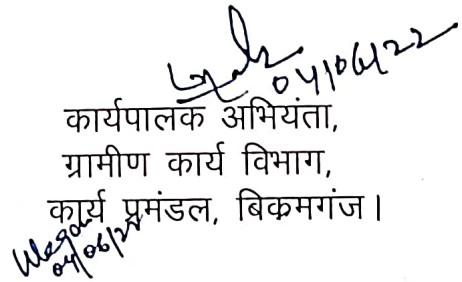 04/06/22
कार्यपालक अभियंता,
ग्रामीण कार्य विभाग,
कार्य प्रमंडल, बिकमगंज।
04/06/22